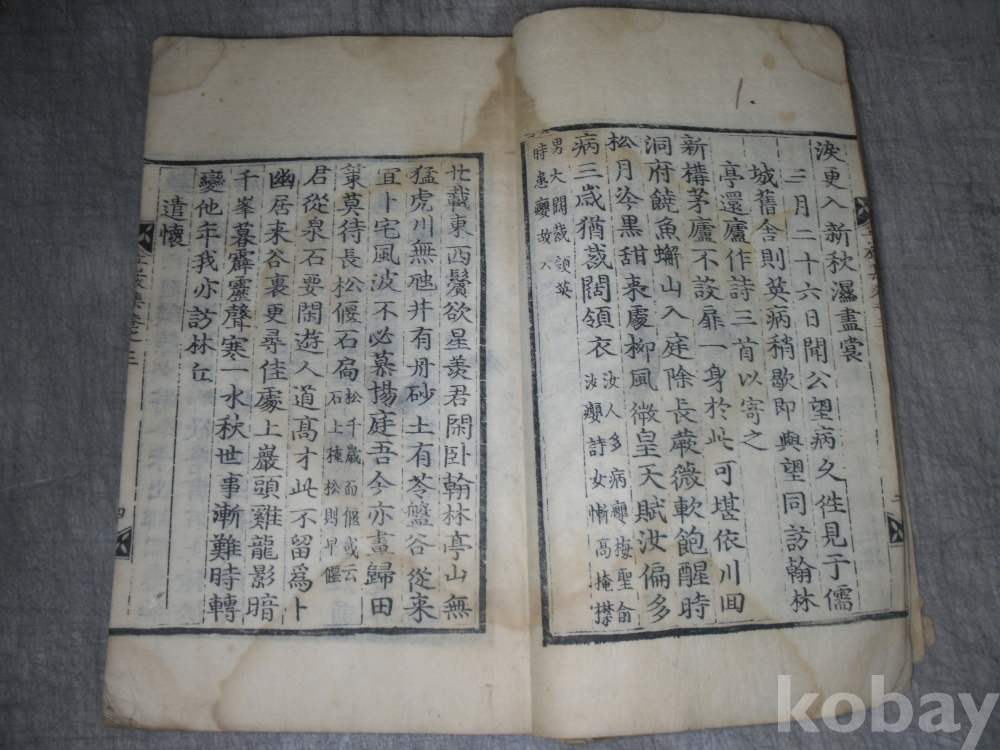 1.
淚更入新秋濕盡裳
三月二十六日聞公望病久往見于儒
城舊舍則英病稍歇即與望同訪翰林
亭還廬作詩三首以寄之
新構茅廬不設扉一身於此可堪依川回
洞府饒魚蠏山入庭除長蕨薇軟飽醒時
松月吟黑甜棗處柳風微皇天賦汝偏多
病三歲猶薎闊領衣 汝人多病癭梅聖俞汝癭詩女慚高掩襟
男大闊裁領英
時患癭故云
廿載東西鬢欲星羨君閑卧翰林亭山無
猛虎川無虺井有丹砂土有苓盤谷從來
宜卜宅風波不必慕揚庭吾今亦畫歸田
策莫待長松偃石扃 松千歲而偃或云石上種松則早偃
君從泉石要閑遊人道高才此不留爲卜
幽居来谷裏更尋佳處上巖頭雞龍影暗
千峯暮霹靂聲寒一水秋世事漸難時轉
變他年我亦訪林丘
遣懷
集卷之三
四
kobay